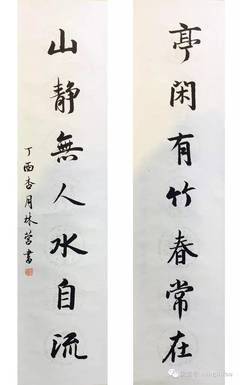 亭閑有竹春常在
山靜無人水自流
丁酉杏月林螢書